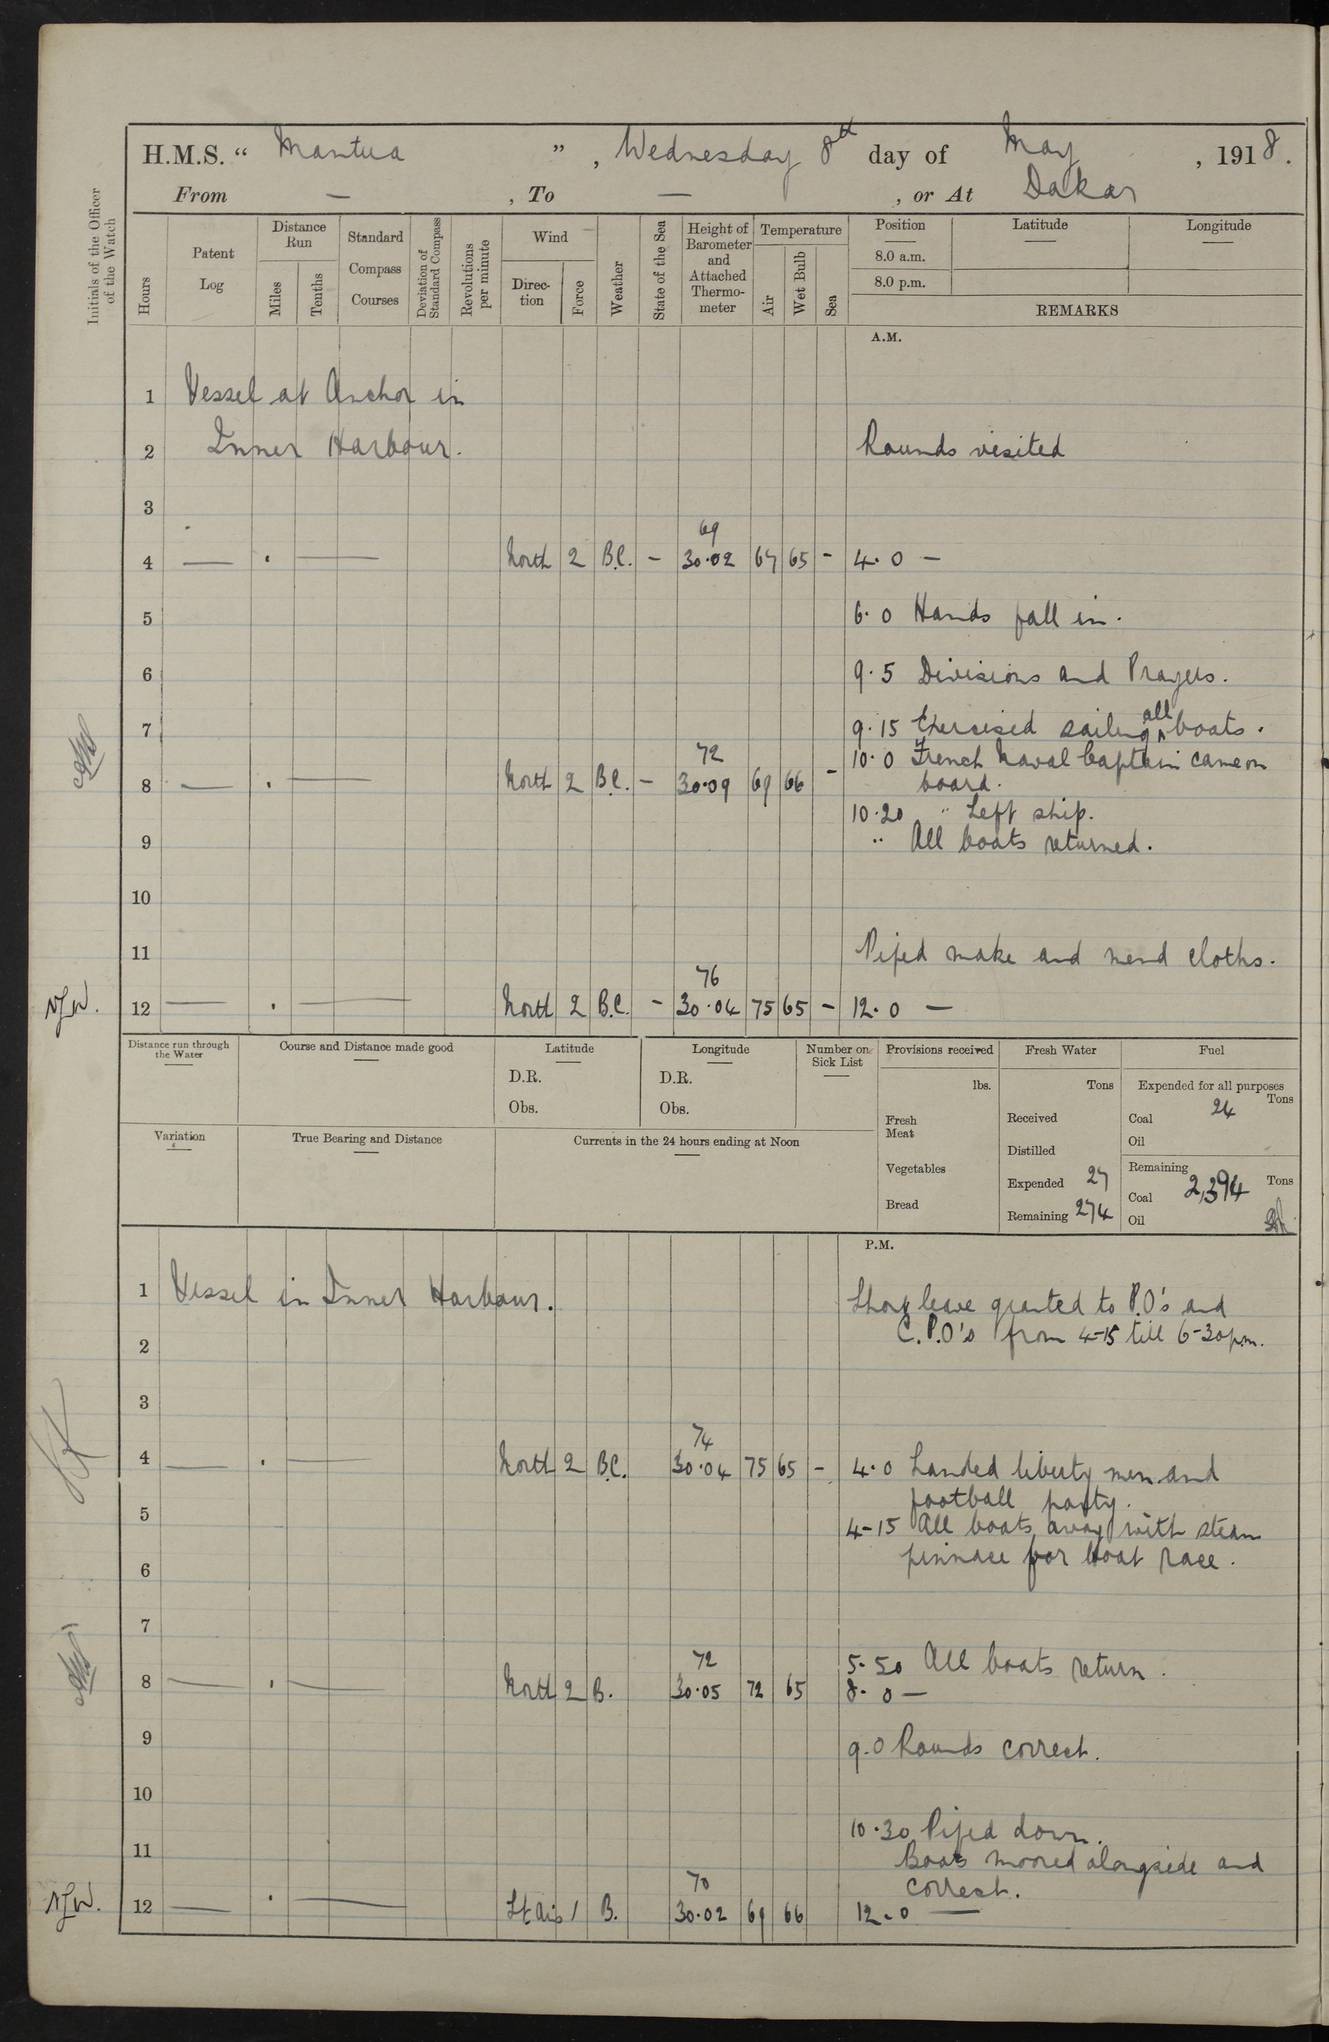 H.M.S. “ Mantua ” , Wednesday 8th day of May , 1918.
From — , To — , or At Dakar
Initials of the Officer of the Watch
Hours
Patent Log
Distance Run
Miles
Tenths
Standard Compass Courses
Deviation of Standard Compass
Revolutions per minute
Wind
Direc-tion
Force
Weather
State of the Sea
Height of Barometer and Attached Thermo-meter
Temperature
Air
Wet Bulb
Sea
Position Latitude Longitude
8.0 a.m.
8.0 p.m.
REMARKS
A.M.
1 Vessel at Anchor in
2 Inner Harbour. Rounds visited
3
69
4 — . — North 2 B.C. — 30.02 67 65 - 4.0 —
5 6.0 Hands fall in.
6 9.5 Divisions and Prayers.
7 9.15 Exercised sailing all boats.
10.0 French Naval Captain came on
72
8 — . — North 2 B.C. — 30.09 69 66 - board.
10.20 " Left ship.
9 " All boats returned.
10
11 Piped make and mend cloths.
76
N.J.W. 12 — . — North 2 B.C. — 30.04 75 65 — 12.0 —
Distance run through the Water
Course and Distance made good
Latitude
D.R.
Obs.
Longitude
D.R.
Obs.
Number on Sick List
Provisions received
lbs.
Fresh Meat
Vegetables
Bread
Fresh Water
Tons
Received
Distilled
Expended 27
Remaining 274
Fuel
Expended for all purposes
Tons
Coal 24
Oil
Remaining
Tons
Coal 2,394
Oil
Variation
True Bearing and Distance
Currents in the 24 hours ending at Noon
P.M.
1 Vessel in Inner Harbour. Short leave granted to P.O's and
2 C.P.O's from 4-15 till 6-30 p.m.
3
74
4 — . — North 2 B.C. 30.04 75 65 - 4.0 Landed liberty men and
football party.
5 4-15 All boats away with steam
6 pinnace for boat race.
7
72 5.50 All boats return.
8 — . — North 2 B. 30.05 72 65 8.0 —
9 9.0 Rounds correct.
10
10.30 Piped down.
11 Boats moored alongside and
70 correct.
N.J.W. 12 — . — Lt Airs 1 B. 30.02 69 66 12.0 —